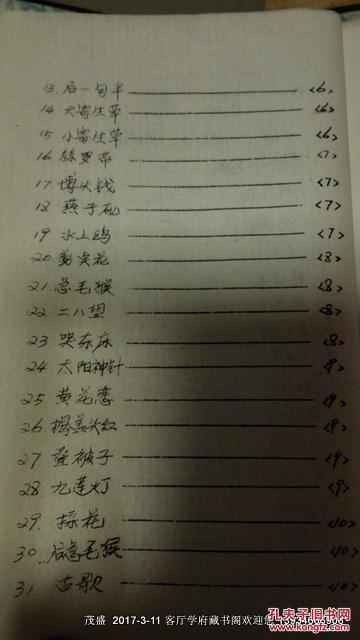 13. 后一句半 <6>
14 大寄生草 <6>
15 小寄生草 <6>
16 <7>
17 博火 <7>
18 燕子 <7>
19 水上鸥 <7>
20. 花 <8>
21. 急毛猴 <8>
22. 二八望 <8>
23 哭东床 <8>
24 太阳神针 <9>
25 黄花恋 <9>
26. 火红 <9>
27 被子 <9>
28 九莲灯 <9>
29. 採花 <10>
30. 后急毛猴 <10>
31 古歌 <10>
茂盛 2017-3-11 客厅学府藏书阁欢迎您
孔夫子旧书网